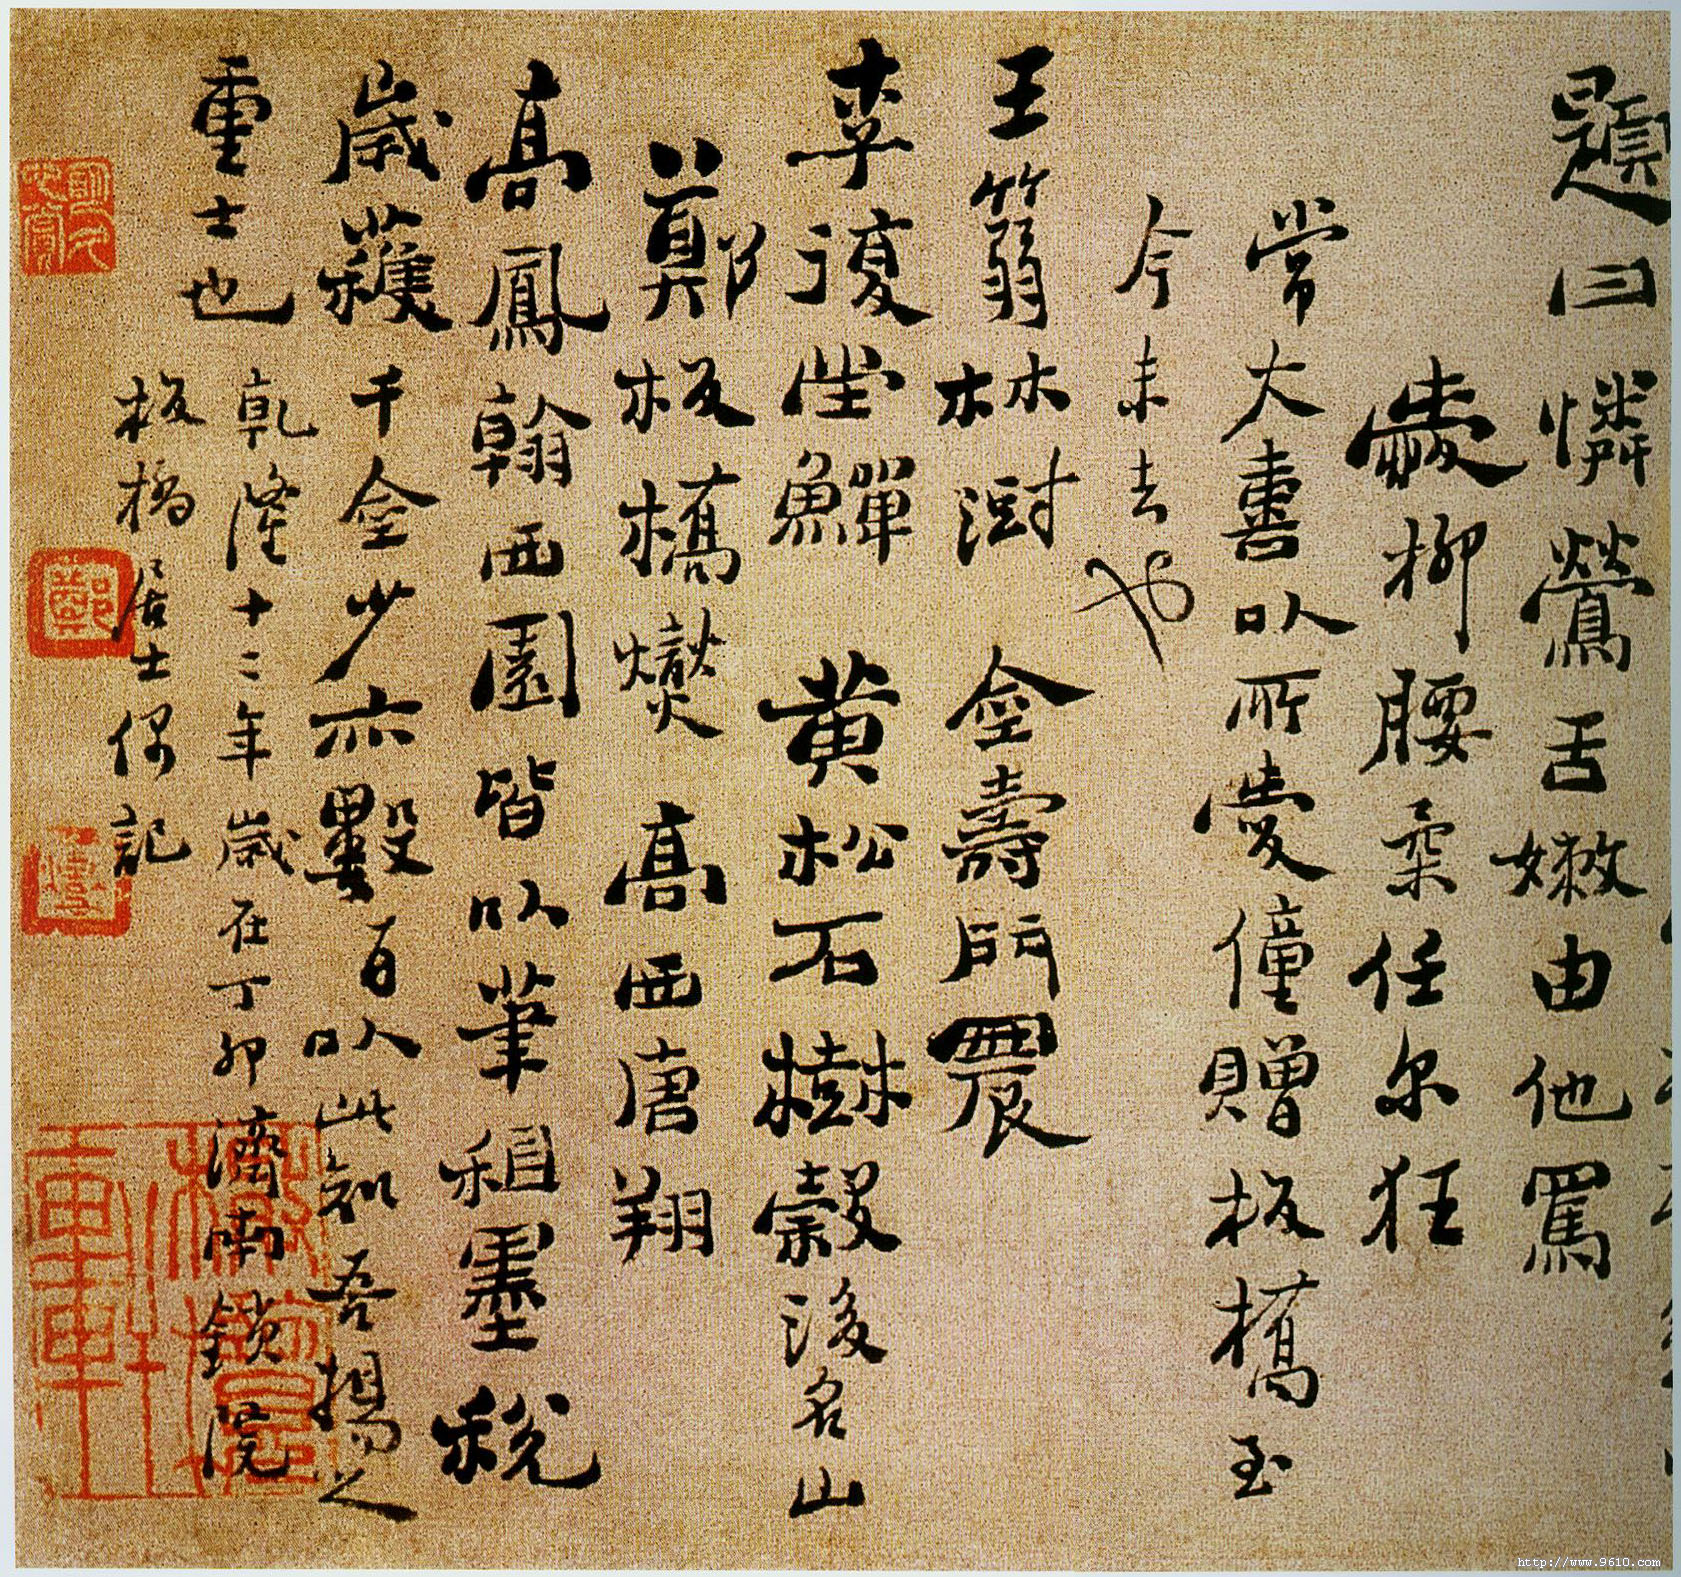 題曰憐鶯舌嫩由他罵
愛柳腰柔任尔狂
常大喜以所愛僮贈板橋至
今未去也
王箬林澍 金壽門農
李復堂鱓 黄松石樹榖後名山
鄭板橋燮 高西唐翔
高鳳翰西園皆以筆租墨稅
歲獲千金少亦數百以此知吾揚之
重士也 乾隆十二年歲在丁卯濟南鎖院
板橋居士偶記
http://www.9610.com